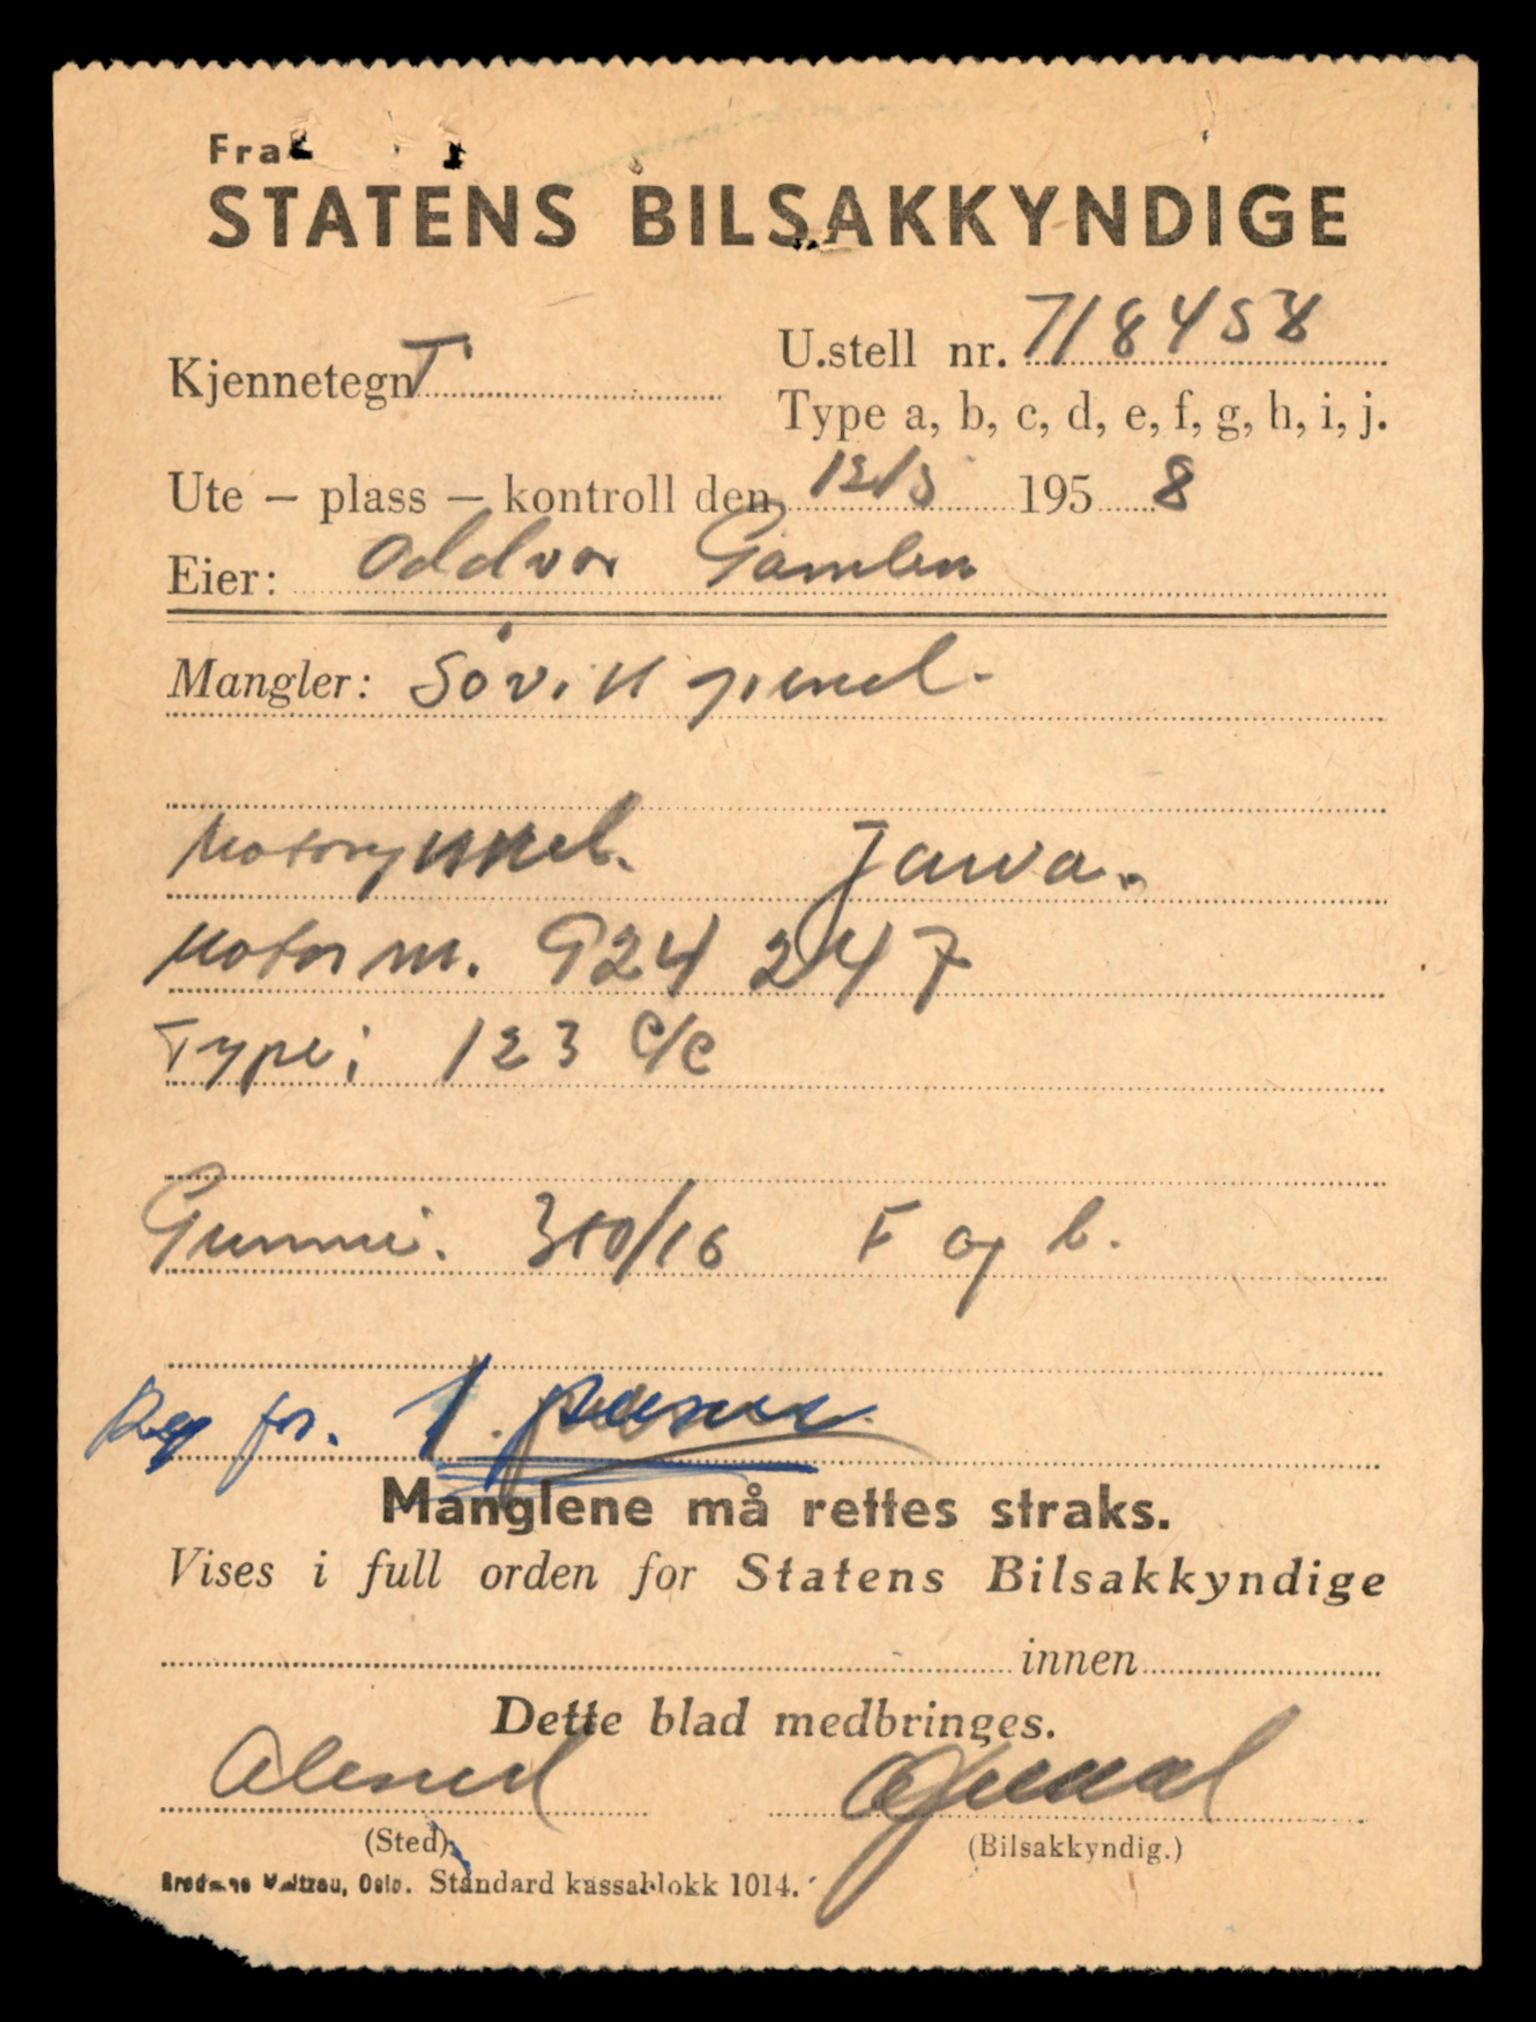 Fra
STATENS BILSAKKYNDIGE
Kjennetegn T
U.stell nr. 718458
Type a, b, c, d, e, f, g, h, i, j.
Ute – plass – kontroll den 12/5 1958
Eier: Oddvar Gamlem
Mangler: Søvik
Motorsykkel. Jawa.
Motor nr. 924 247
Type: 123 c/c
Gummi. 3.00/16 F og b.
Reg for. 1. person
Manglene må rettes straks.
Vises i full orden for Statens Bilsakkyndige
innen
Dette blad medbringes.
Ålesund
(Sted)
(Bilsakkyndig.)
Brødrene Waltzau, Oslo. Standard kassablokk 1014.